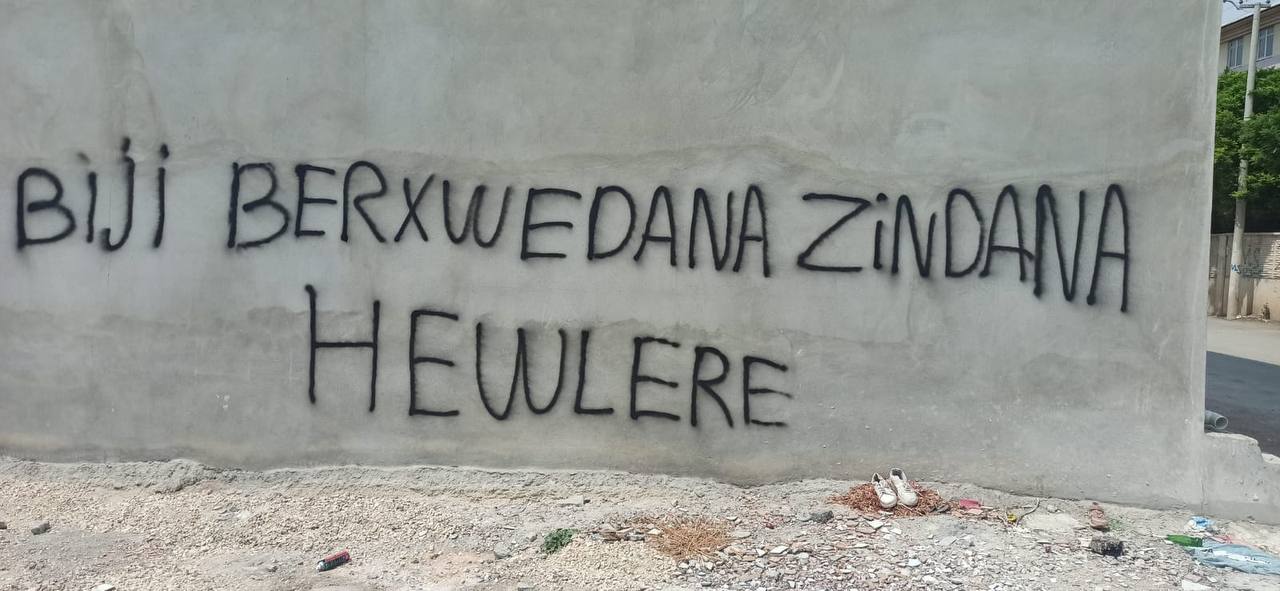 BIJI BERXWEDANA ZINDANA
HEWLERE